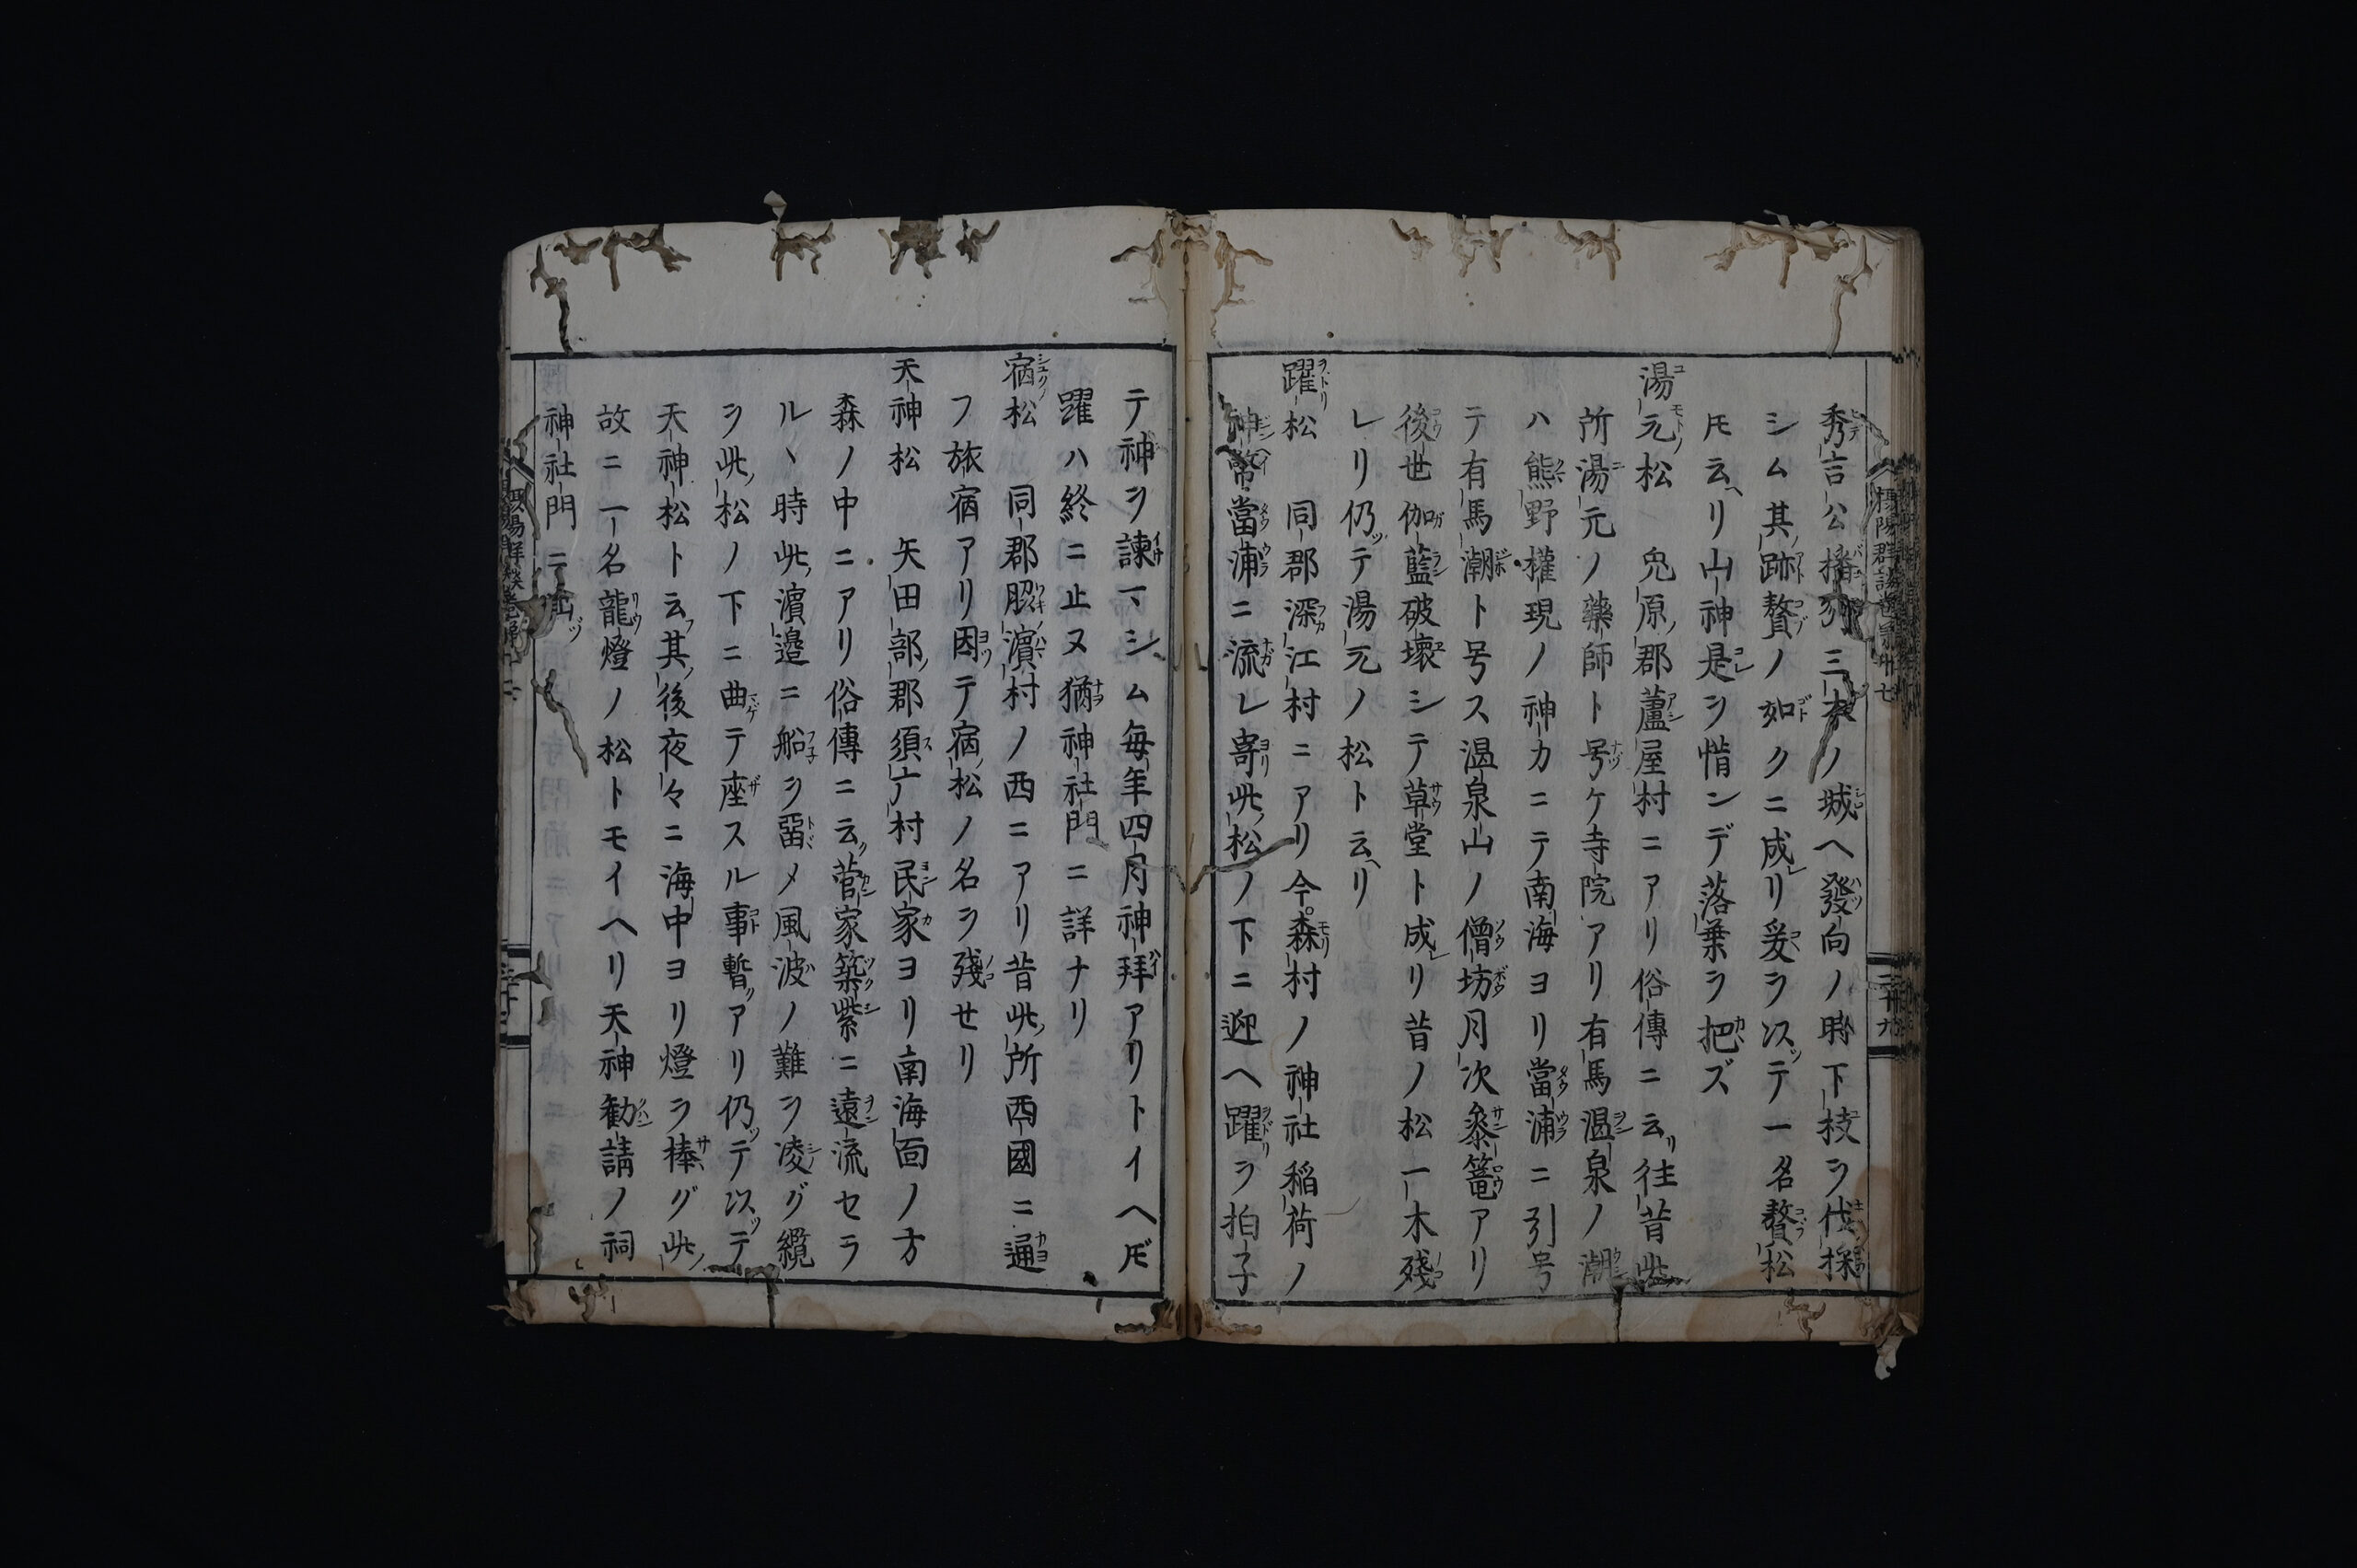 秀吉公播州三木ノ城ヘ發向ノ時下枝ヲ伐採
シム其跡贅ノ如クニ成リ爰ヲ以テ一名贅松
トモ云ヘリ山神是ヲ惜ンデ落葉ヲ把ズ
湯元松 兎原郡蘆屋村ニアリ俗傳ニ云往昔此
所湯元ノ藥師ト号ケ寺院アリ有馬温泉ノ潮
ハ熊野權現ノ神力ニテ南海ヨリ當浦ニ引号
テ有馬潮ト号ス温泉山ノ僧坊月次參篭アリ
後世伽藍破壞シテ草堂ト成リ昔ノ松一木殘
レリ仍テ湯元ノ松ト云ヘリ
躍松 同郡深江村ニアリ今森村ノ神社稲荷ノ
神幣當浦ニ流レ寄此松ノ下ニ迎ヘ躍ヲ拍子
テ神ヲ諫マシム毎年四月神拜アリトイヘドモ
躍ハ終ニ止ヌ猶神社門ニ詳ナリ
宿松 同郡脇濵村ノ西ニアリ昔此所西國ニ通
フ旅宿アリ因テ宿松ノ名ヲ殘せリ
天神松 矢田部郡須广村民家ヨリ南海面ノ方
森ノ中ニアリ俗傳ニ云菅家築紫ニ遠流セラ
ルヽ時此濵邉ニ船ヲ畱メ風波ノ難ヲ凌グ纜
ヲ此松ノ下ニ曲テ座スル事暫アリ仍テ以テ
天神松ト云其後夜々ニ海中ヨリ燈ヲ棒グ此
故ニ一名龍燈ノ松トモイヘリ天神勧請ノ祠
神社門ニ出ヅ